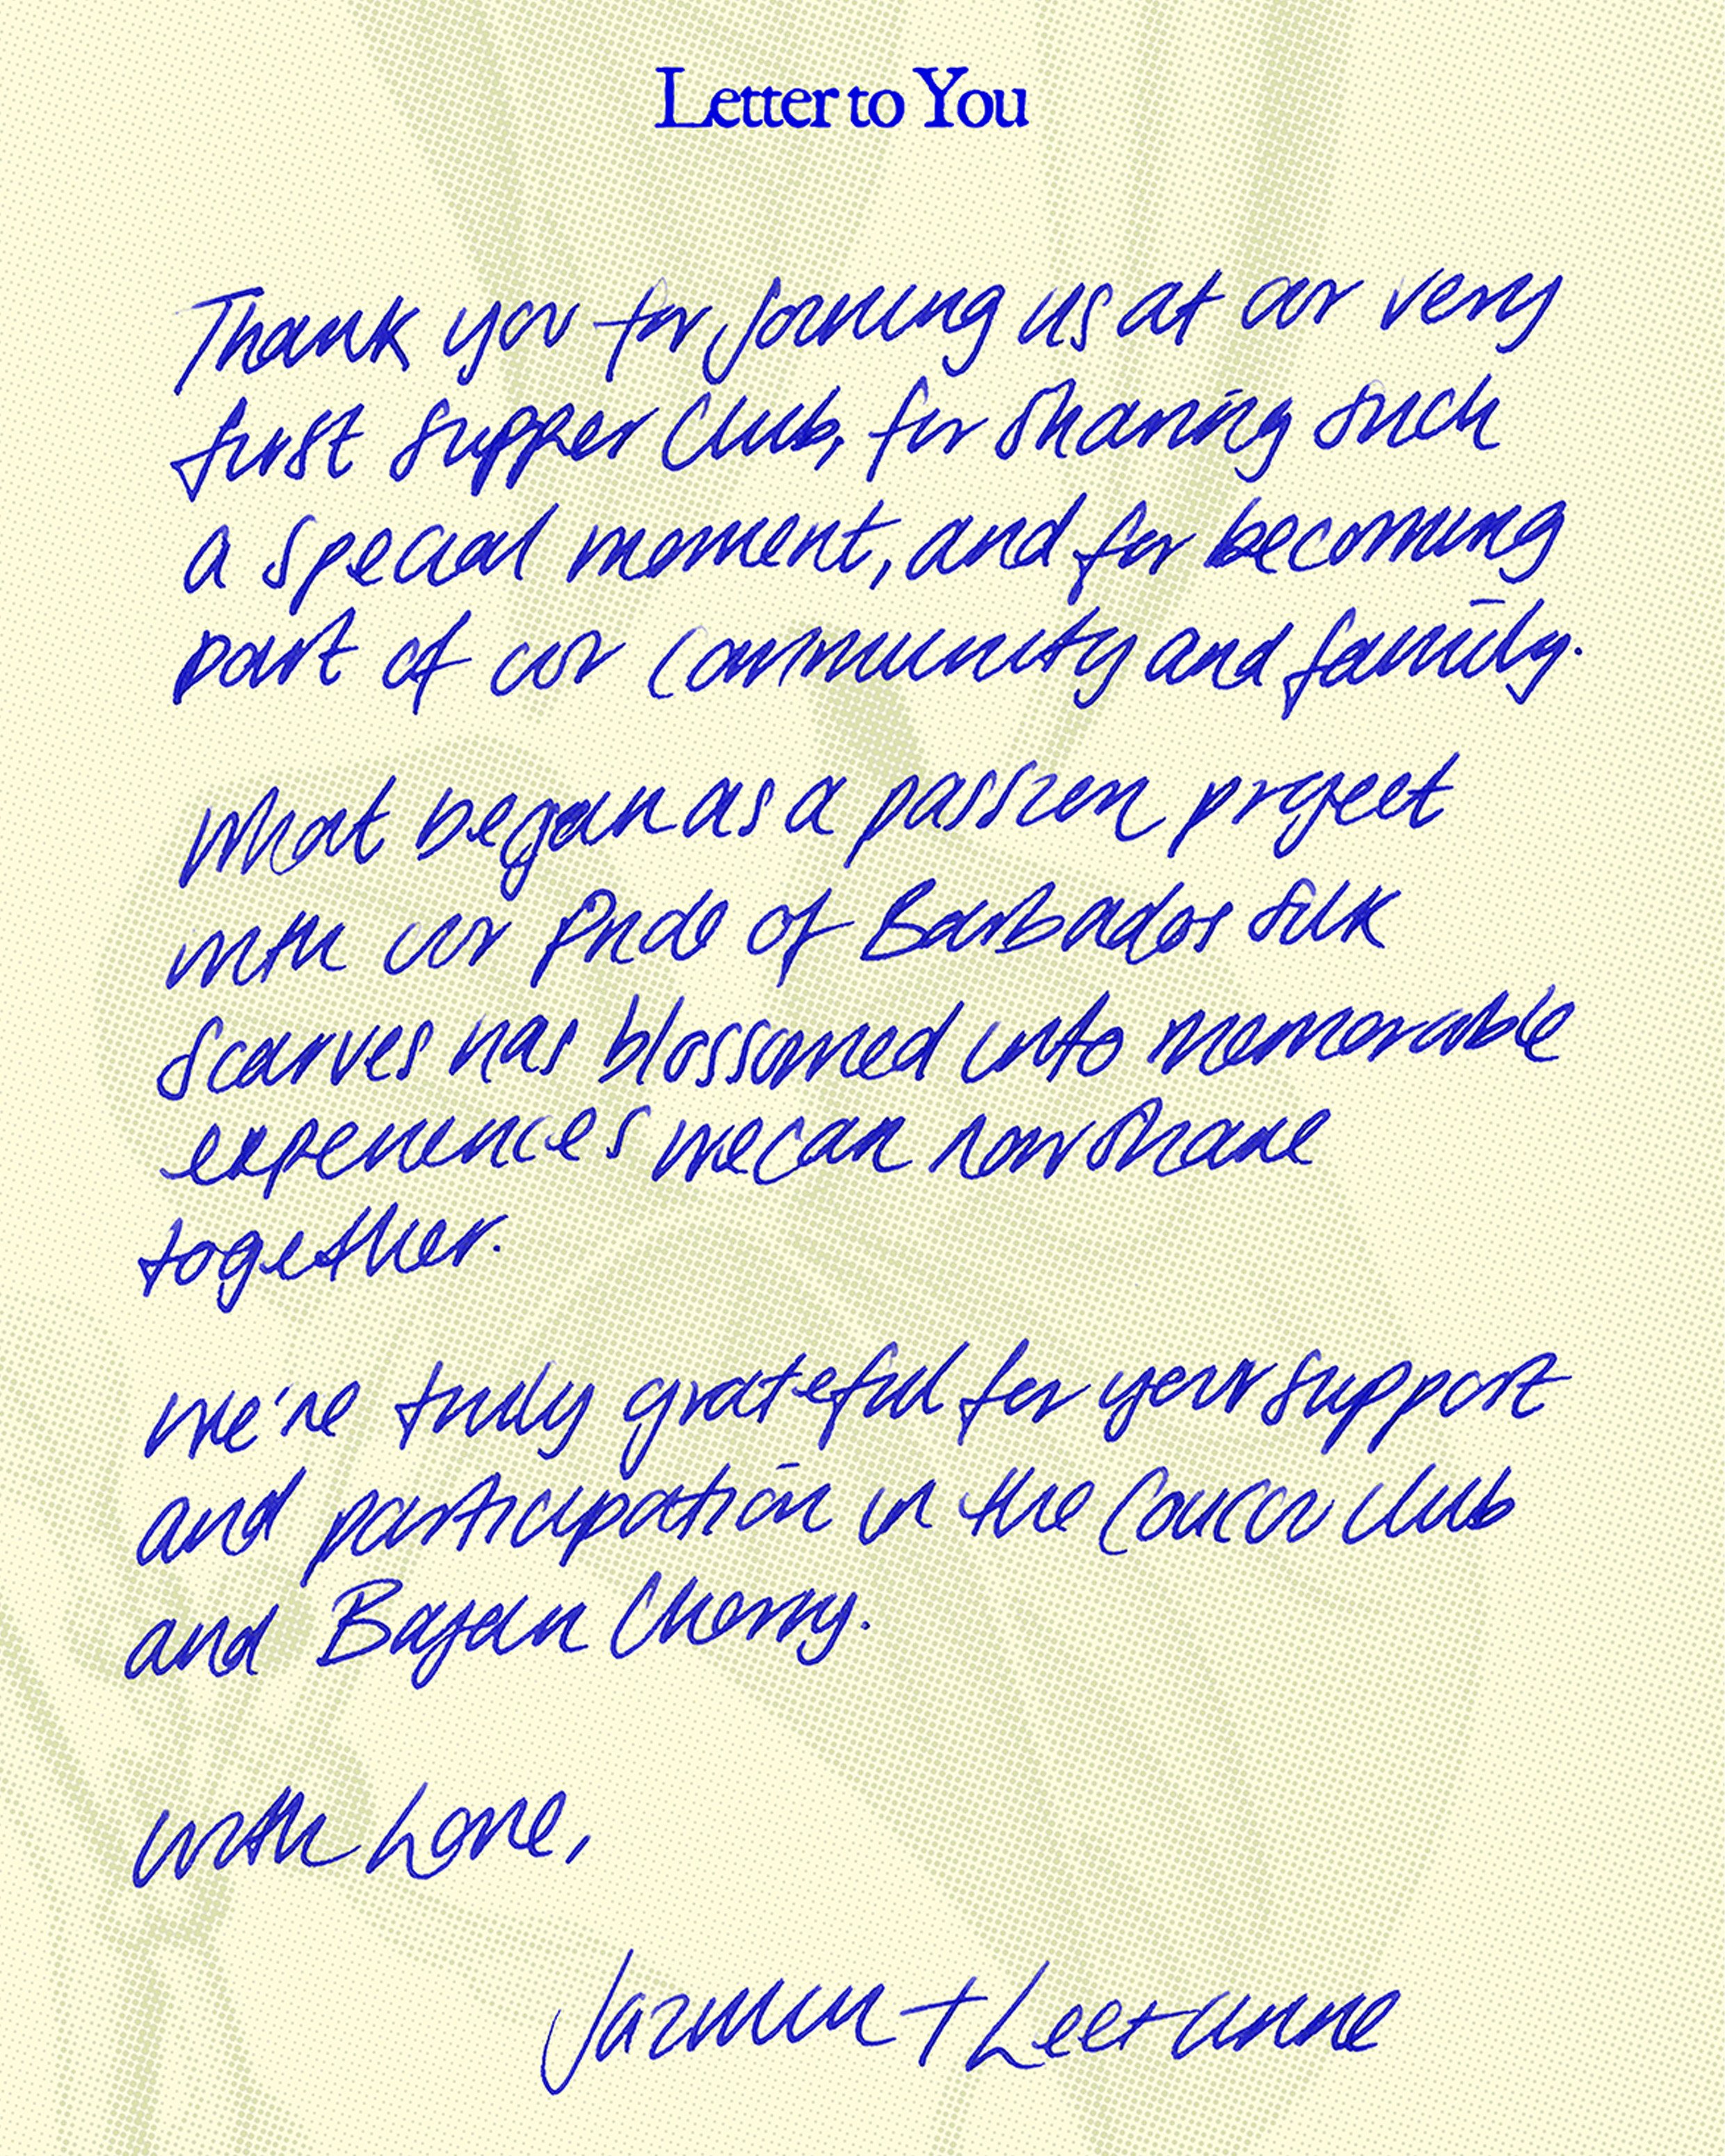 Letter to You
Thank you for joining us at our very
first supper club, for sharing such
a special moment, and for becoming
part of our community and family.
What began as a passion project
with our Pride of Barbados silk
scarves has blossomed into memorable
experiences we can now share
together.
We're truly grateful for your support
and participation in the Coucou club
and Bajan Cherry.
With Love,
Jazmin + Lee+anne